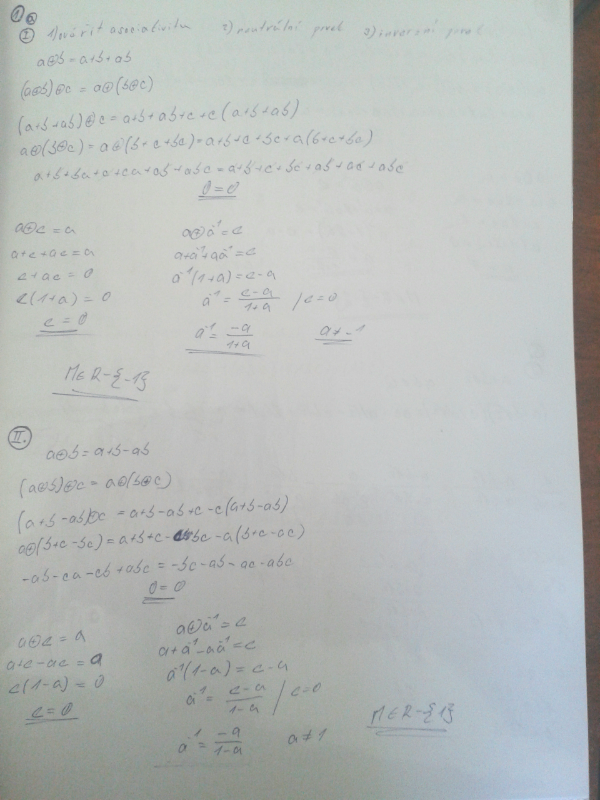 1a
I 1) ověřit asociativitu 2) neutrální prvek 3) inverzní prvek
a⊕b = a+b+ab
(a⊕b)⊕c = a⊕(b⊕c)
(a+b+ab)⊕c = a+b+ab+c+c(a+b+ab)
a⊕(b⊕c) = a⊕(b+c+bc) = a+b+c+bc+a(b+c+bc)
a+b+ba+c+ca+cb+abc = a+b+c+bc+ab+ac+abc
0=0
a⊕e = a
a+e+ae = a
e+ae = 0
e(1+a) = 0
e = 0
a⊕a⁻¹ = e
a+a⁻¹+aa⁻¹ = e
a⁻¹(1+a) = e-a
a⁻¹ = (e-a)/(1+a) / e=0
a⁻¹ = -a/(1+a) a≠-1
M∈R-{-1}
II.
a⊕b = a+b-ab
(a⊕b)⊕c = a⊕(b⊕c)
(a+b-ab)⊕c = a+b-ab+c-c(a+b-ab)
a⊕(b+c-bc) = a+b+c-bc-a(b+c-ac)
-ab-ca-cb+abc = -bc-ab-ac-abc
0=0
a⊕e = a
a+e-ae = a
e(1-a) = 0
e = 0
a⊕a⁻¹ = e
a+a⁻¹-aa⁻¹ = e
a⁻¹(1-a) = e-a
a⁻¹ = (e-a)/(1-a) / e=0
a⁻¹ = -a/(1-a) a≠1
M∈R-{1}